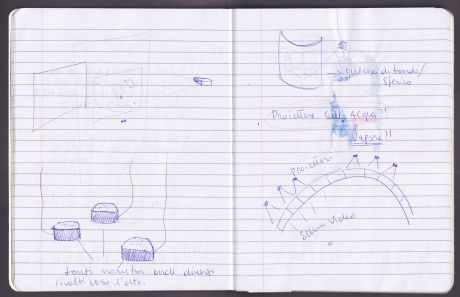 tanti monitor anche diversi
rivolti verso l'alto.
→ qualcosa di tondo/
sferico
Proiettare sull'Acqua?!
Vapore?!
proiettori
Schermi Video